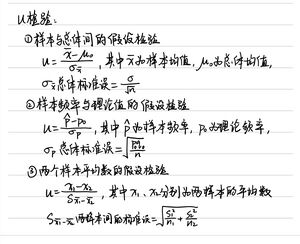 u检验:
①样本与总体间的假设检验
u = (x̄ - μ₀) / σx̄ , 其中x̄为样本均值, μ₀为总体均值,
σx̄总体标准误 = σ / √n
②样本频率与理论值的假设检验
u = (p̂ - p₀) / σp , 其中p̂为样本频率, p₀为理论频率,
σp总体标准误 =
③两个样本平均数的假设检验
u = (x̄₁ - x̄₂) / Sx̄₁-x̄₂ , 其中x̄₁、x̄₂分别为两样本的平均数
Sx̄₁-x̄₂两样本间的标准误 = √(S₁²/n₁ + S₂²/n₂)